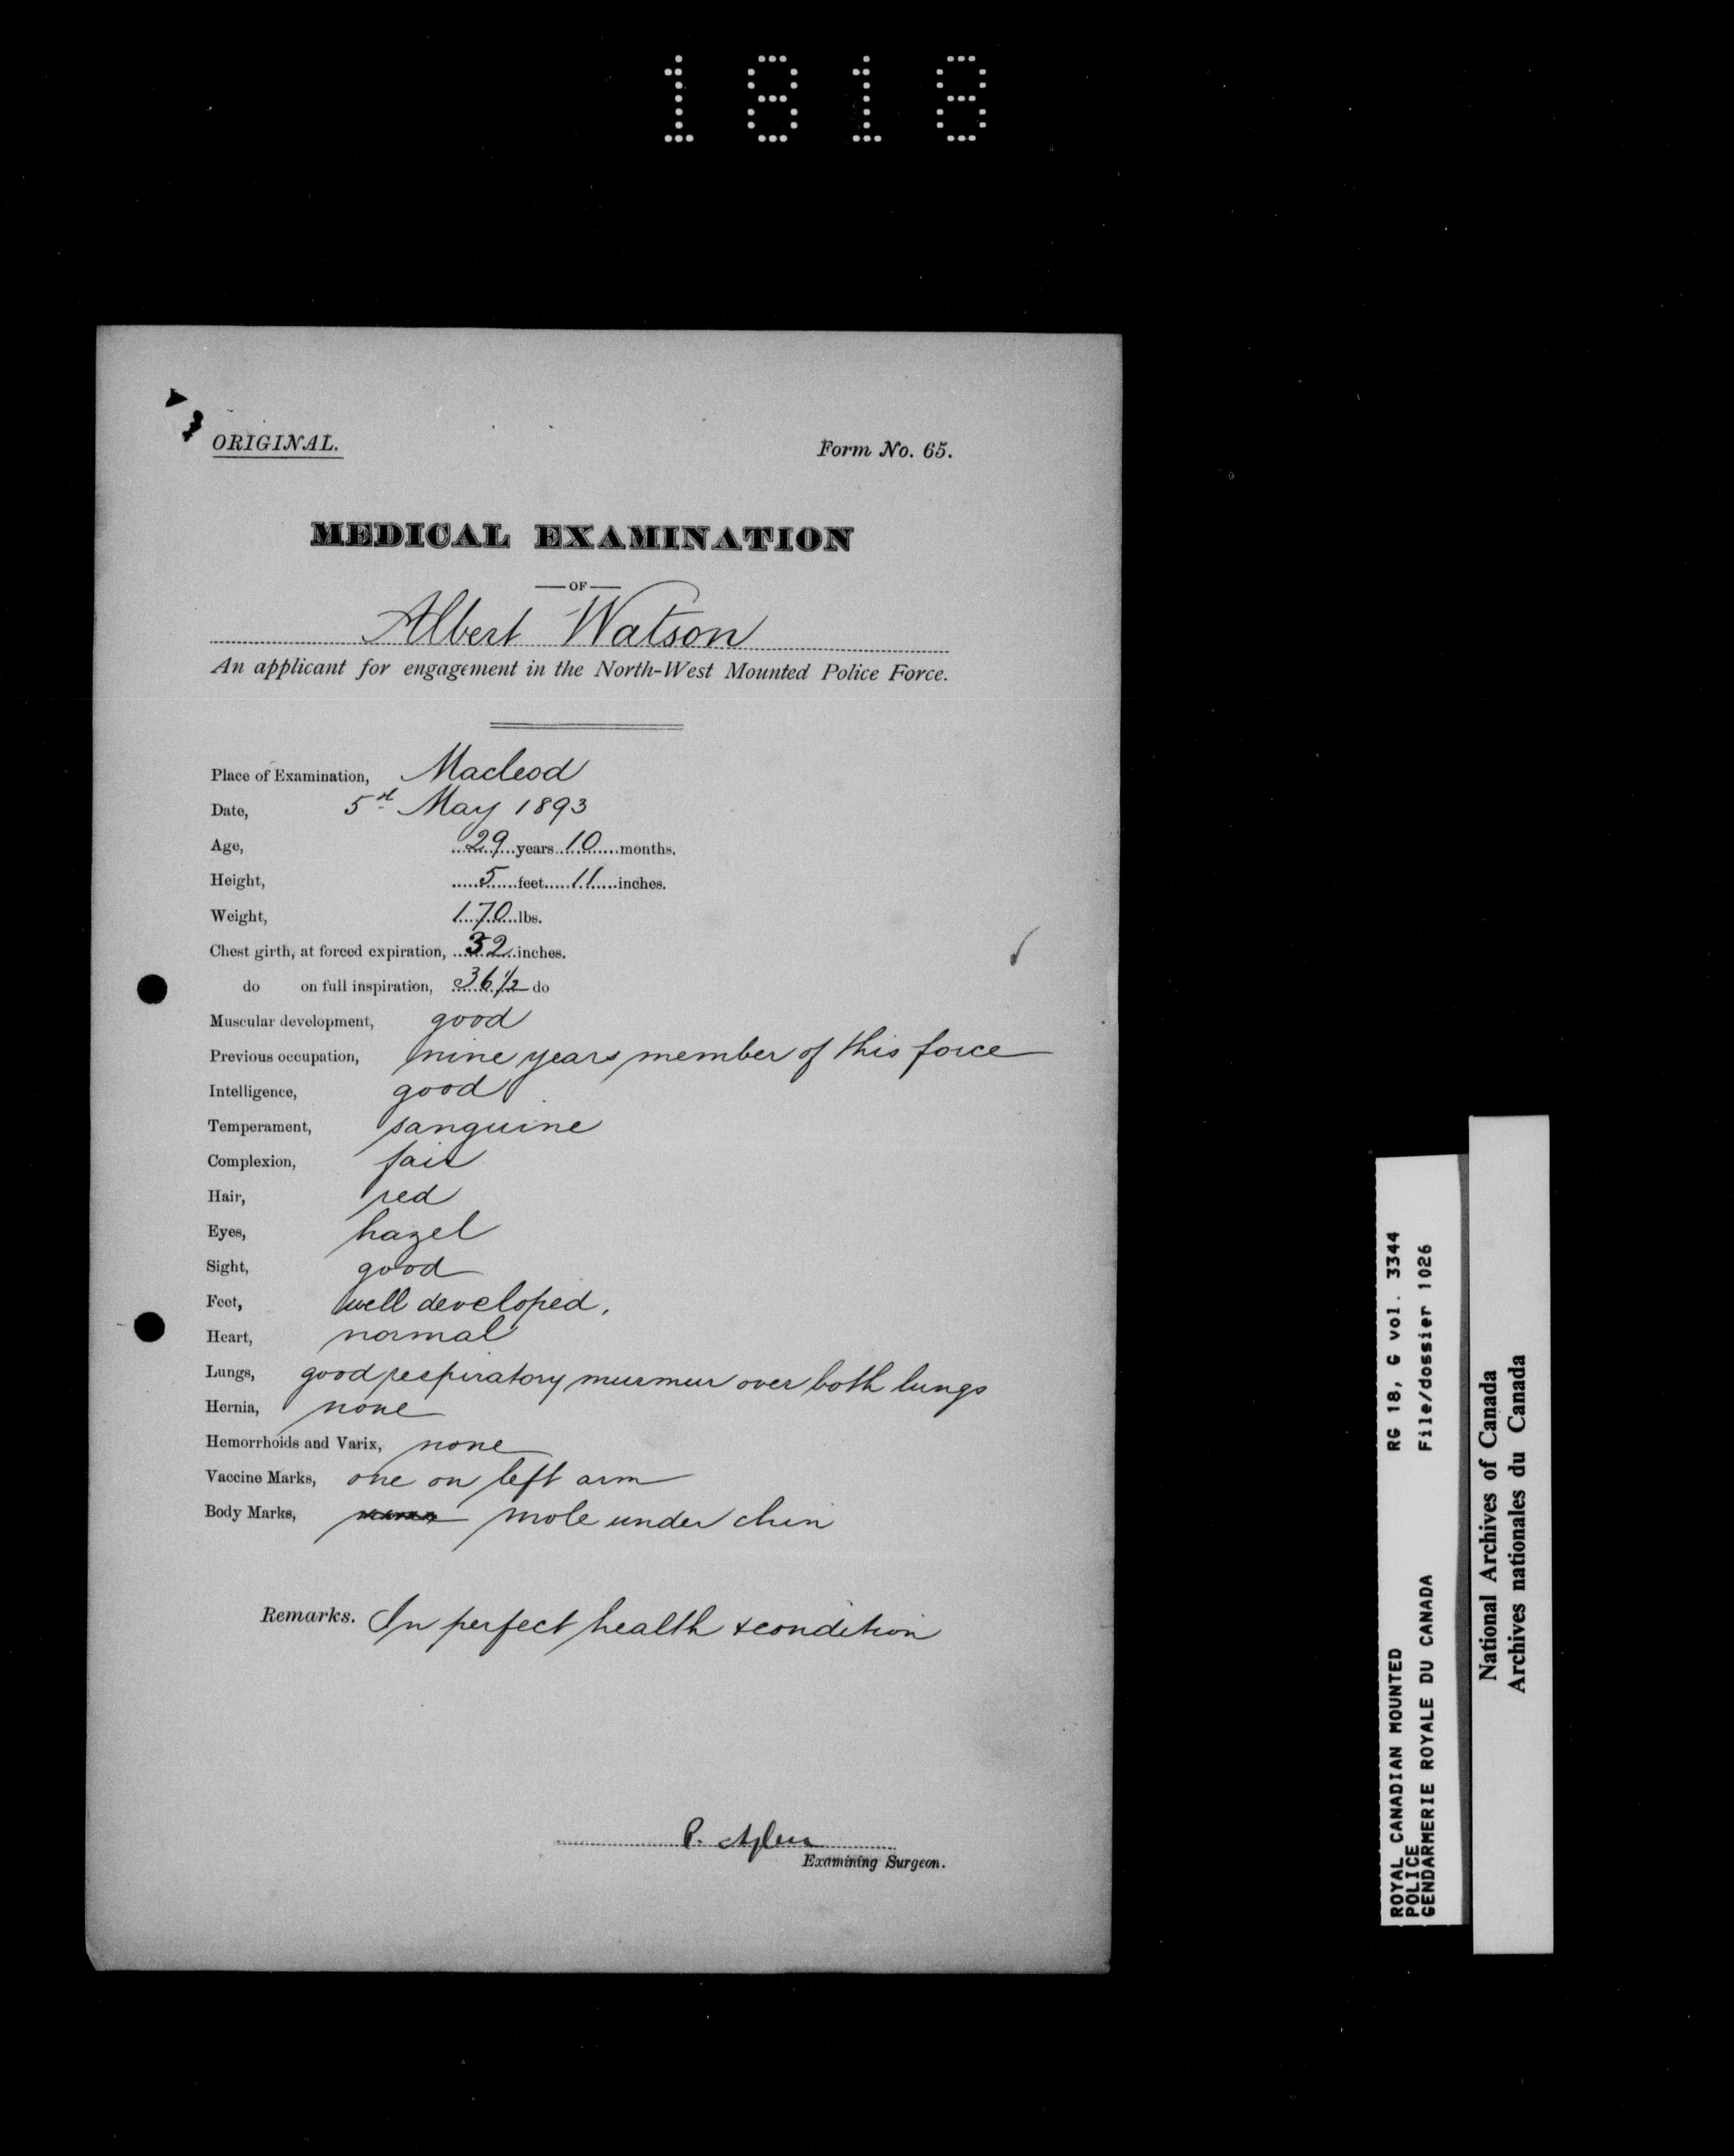 1818
ORIGINAL.
Form No. 65.
MEDICAL EXAMINATION
OF
Albert Watson
An applicant for engagement in the North-West Mounted Police Force.
Place of Examination, Macleod
Date, 5th May 1893
Age, 29 years 10 months.
Height, 5 feet 11 inches.
Weight, 170 lbs.
Chest girth, at forced expiration, 32 inches.
do on full inspiration, 36 1/2 do
Muscular development, good
Previous occupation, nine years member of this force
Intelligence, good
Temperament, sanguine
Complexion, fair
Hair, red
Eyes, hazel
Sight, good
Feet, well developed.
Heart, normal
Lungs, good respiratory murmur over both lungs
Hernia, none
Hemorrhoids and Varix, none
Vaccine Marks, one on left arm
Body Marks, mole under chin
Remarks. In perfect health & condition
P. Aylen
Examining Surgeon.
ROYAL CANADIAN MOUNTED POLICE
GENDARMERIE ROYALE DU CANADA
RG 18, G vol. 3344
File/dossier 1026
National Archives of Canada
Archives nationales du Canada